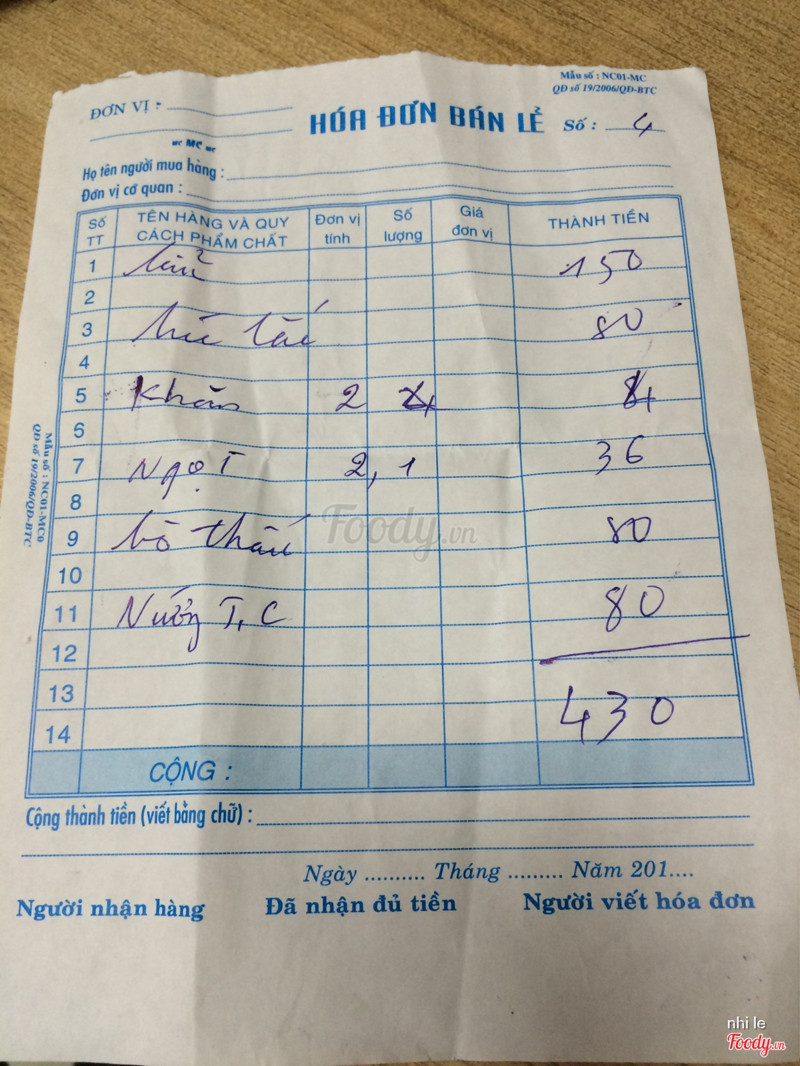 Mẫu số : NC01-MC
QĐ số 19/2006/QĐ-BTC
ĐƠN VỊ :
HÓA ĐƠN BÁN LẺ Số : 4
MC MC MC
Họ tên người mua hàng :
Đơn vị cơ quan :
Số TT TÊN HÀNG VÀ QUY CÁCH PHẨM CHẤT Đơn vị tính Số lượng Giá đơn vị THÀNH TIỀN
1 Lẩu 150
2
3 80
4
5 Khăn 2 4 4
6
7 NGỌT 2, 1 36
8
9 bò 80
10
11 Nướng T, C 80
12
13 430
14
CỘNG :
Cộng thành tiền (viết bằng chữ) :
Ngày .......... Tháng ......... Năm 201....
Người nhận hàng Đã nhận đủ tiền Người viết hóa đơn
Mẫu số : NC01-MC0
QĐ số 19/2006/QĐ-BTC
Foody.vn
nhi le
Foody.vn